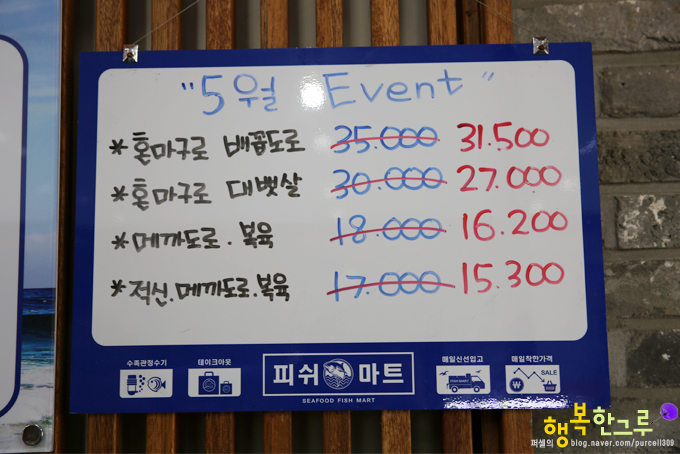 "5월 Event"
*혼마구로 배꼽도로 35.000 31.500
*혼마구로 대뱃살 30.000 27.000
*메까도로.복육 18.000 16.200
*적신.메까도로.복육 17.000 15.300
수족관정수기 테이크아웃 피쉬 마트 매일신선입고 매일착한가격
FISH MART SALE
SEAFOOD FISH MART
행복한그루
퍼셀의 blog.naver.com/purcell309